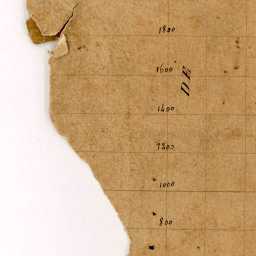 1800
1600
DE
1400
1200
1000
800